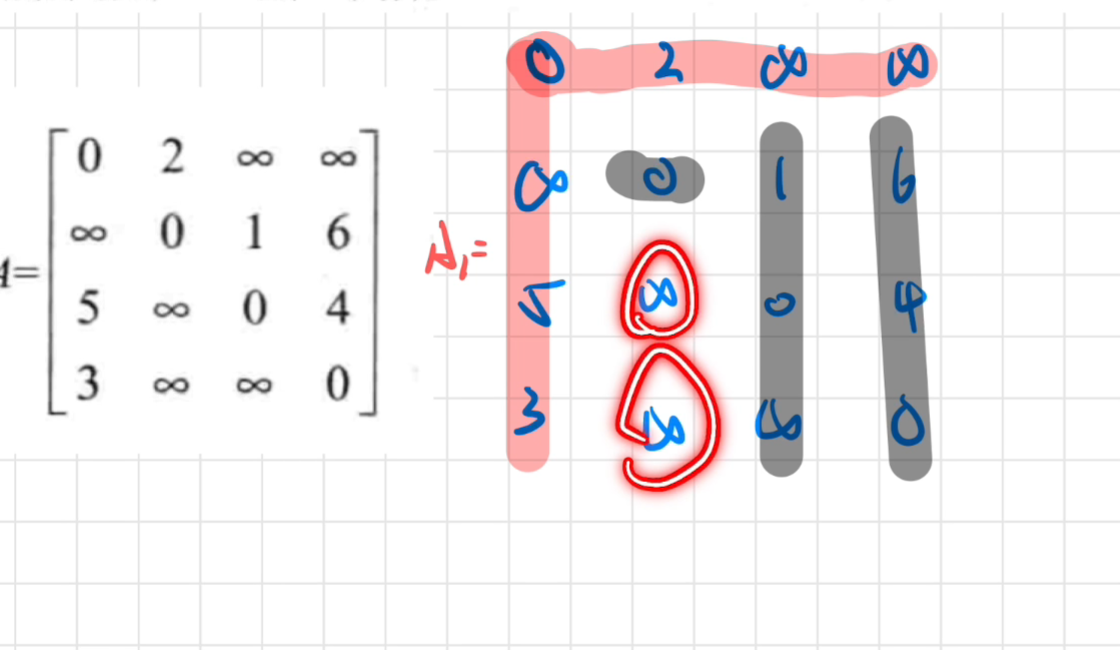 A=
0 2 ∞ ∞
∞ 0 1 6
5 ∞ 0 4
3 ∞ ∞ 0
A₁=
0 2 ∞ ∞
∞ 0 1 6
5 ∞ 0 4
3 ∞ ∞ 0